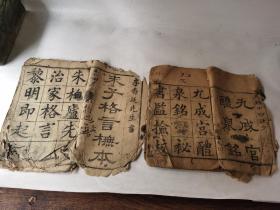 朱子格言橅本
先生書
朱柏廬先
治家格言
黎明即起
九成宮
醴泉銘
九成宮醴
泉銘祕
書監檢校